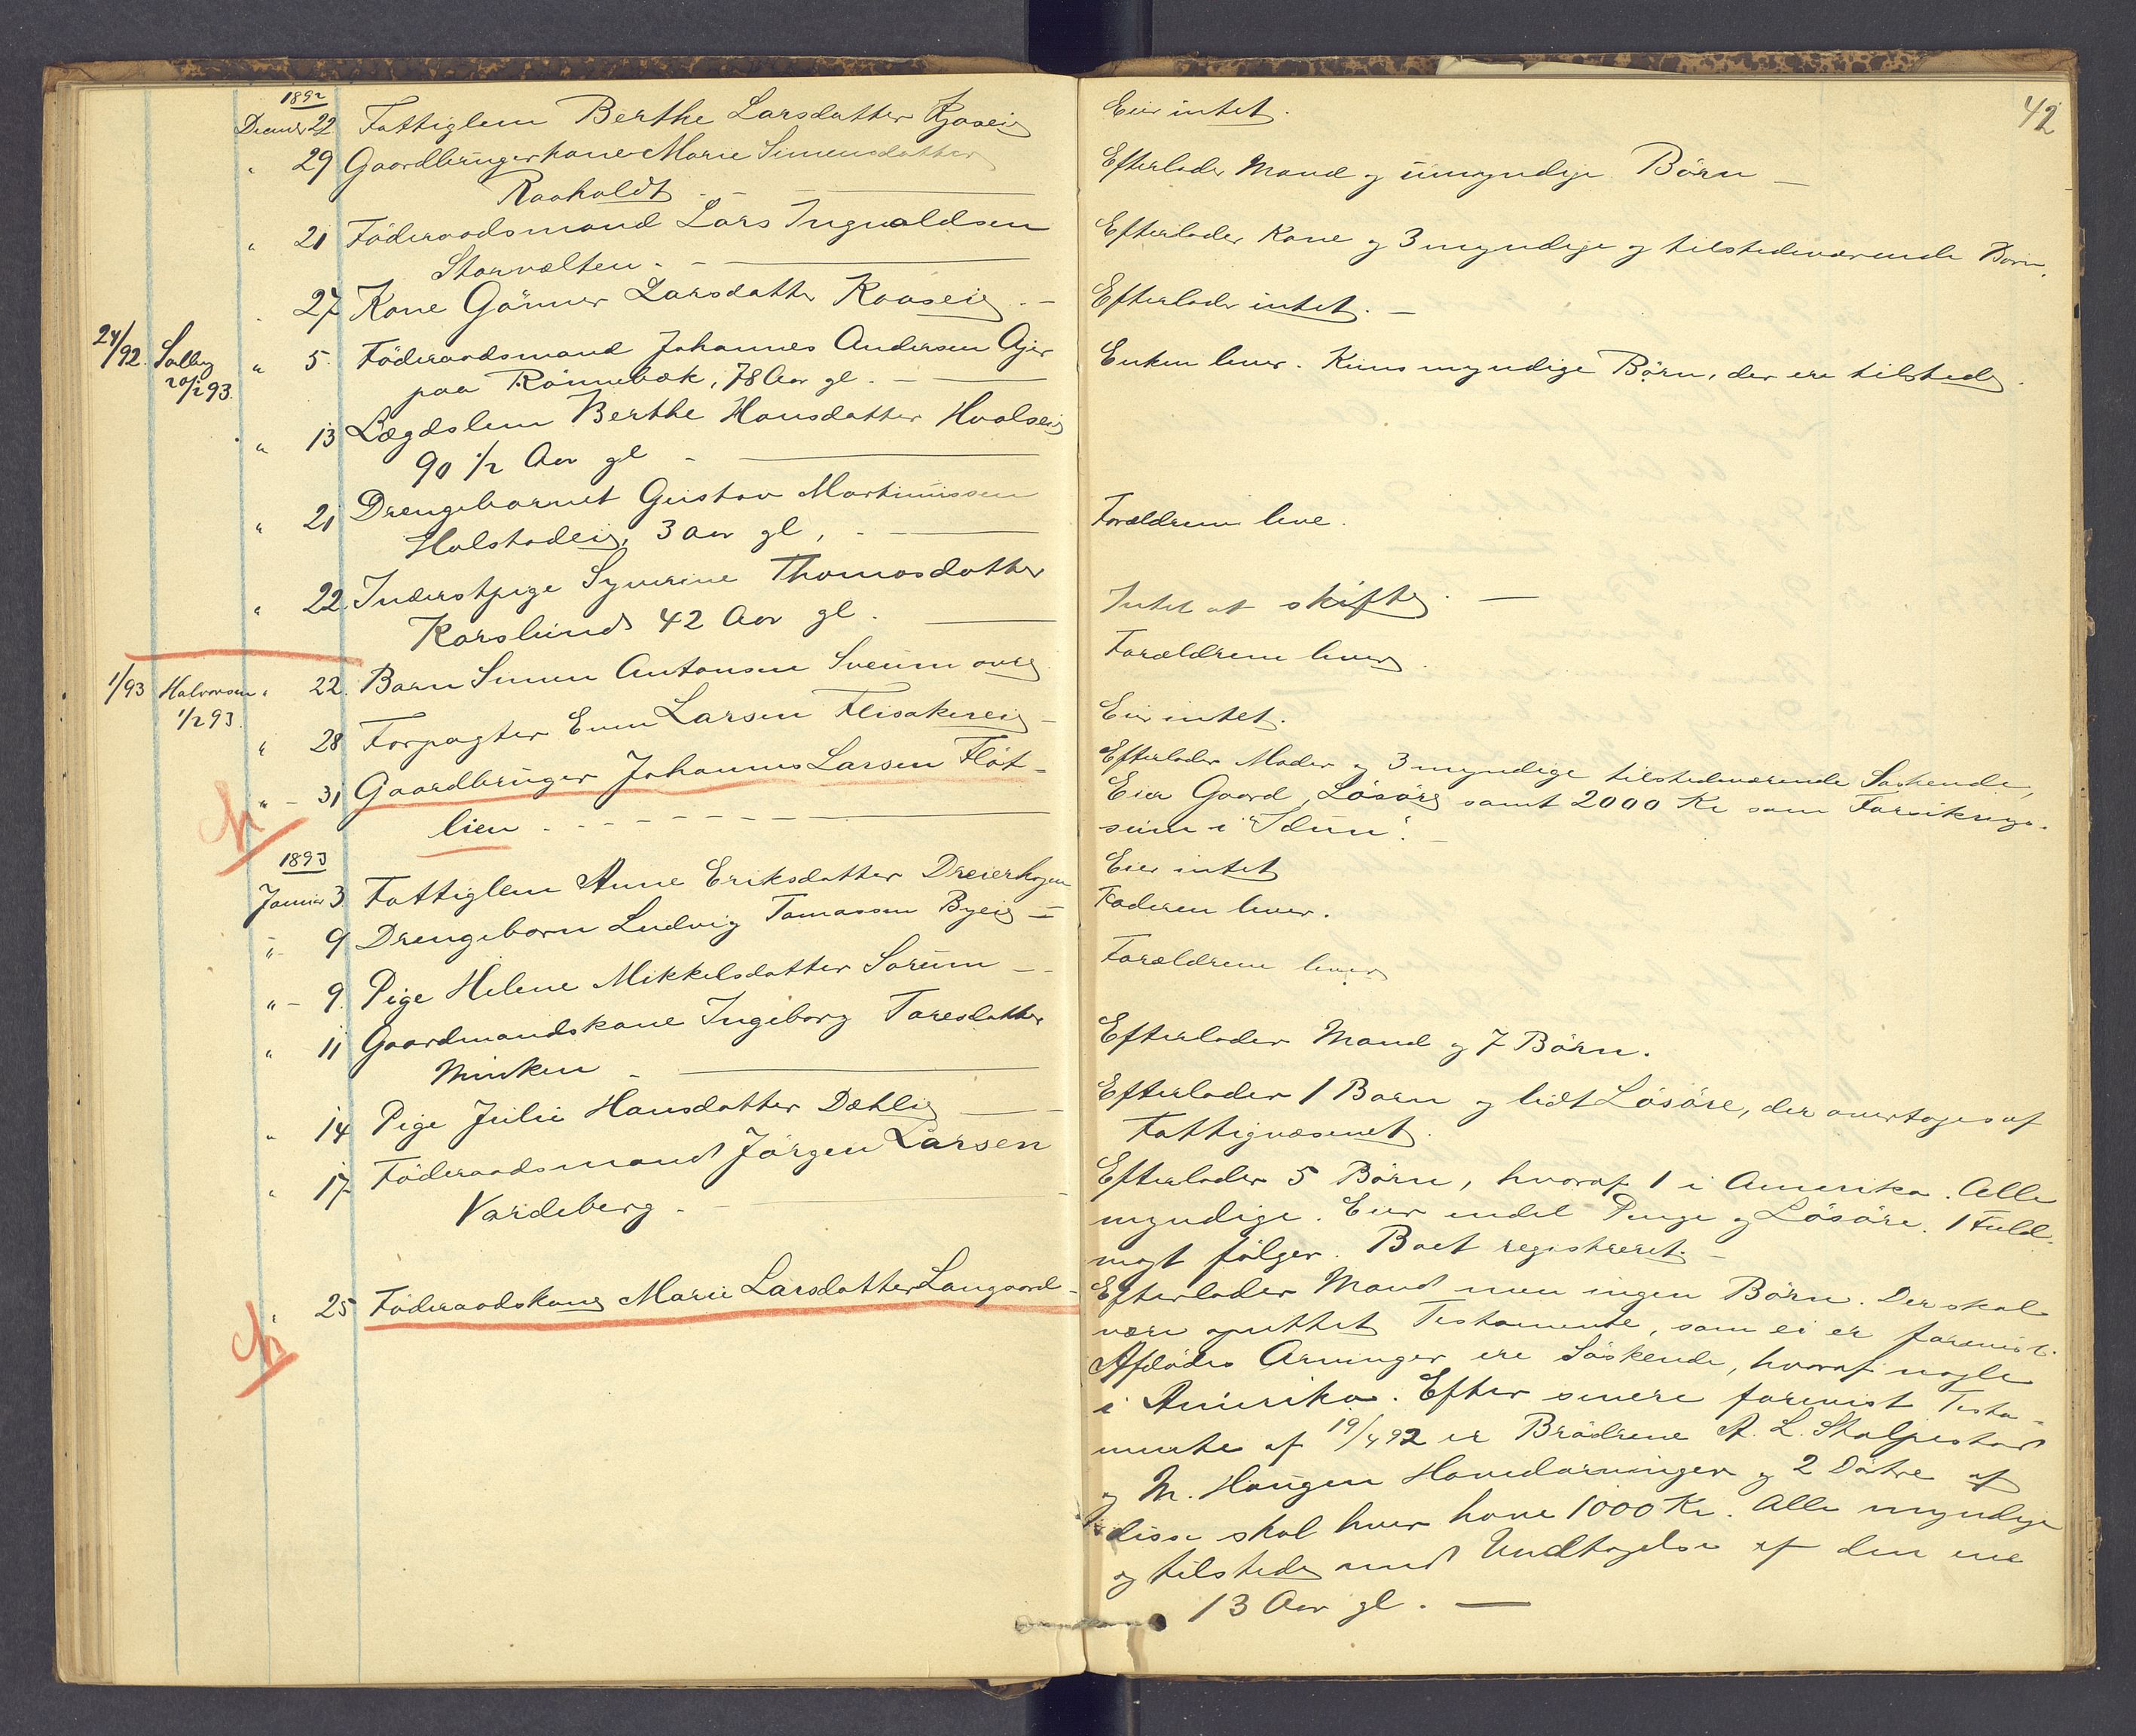 42
1892
Decmbr 22 Fattiglem Berthe Larsdatter
Eier intet.
" 29 Gaardbrugerkone Marie Simensdatter
Raaholdt
Efterlader Mand og umyndige Börn
" 21 Föderaadsmand Lars Ingvaldsen
Storvolten
Efterlader Kone og 3 myndige og tilstedeværende Born.
" 27 Kone Görner Larsdatter Raaseie
Efterlader intet.
24/92. Solby " 5. Föderaadsmand Johannes Andersen Ajer
20/1 93.
paa Rönnebæk, 78 Aar gl.
Enken lever. Kuns myndige Börn, der ere tilstede.
" 13 Lægdslem Berthe Hansdatter Hvalseie
90 1/2 Aar gl
" 21 Drengebarnet Gustav Martinussen
Holstadeie, 3 Aar gl,
Forældrene leve.
" 22. Inderstpige Syverine Thomasdatter
Korslund 42 Aar gl.
Intet at skifte.
1/93 Halvorsen " 22. Barn Simen Antonsen Sveum övre
1/2 93.
Forældrene lever.
" 28 Forpagter Even Larsen Flisakereie
Eier intet.
" - 31 Gaardbruger Johannes Larsen Flöt-
lien
Efterlader Moder og 3 myndige tilstedeværende Söskende,
Eier Gaard, Lösöre samt 2000 Kr som Forsikrings-
sum i "Idun".
1893
Januar 3. Fattiglem Anne Eriksdatter Dreierhagen
Eier intet
" - 9 Drengebarn Ludvig Tomassen Byeie
Faderen lever.
" - 9. Pige Helene Mikkelsdatter Sorum
Forældrene lever
" 11 Gaardmandskone Ingeborg Toresdatter
Minken
Efterlader Mand og 7 Börn.
" 14 Pige Julie Hansdatter Dæhlie
Efterlader 1 Barn og lidt Lösöre, der overtages af
Fattigvæsenet.
" 17 Föderaadsmand Jörgen Larsen
Vardeberg
Efterlader 5 Börn, hvoraf 1 i Amerika. Alle
myndige. Eier endel Penge og Lösöre. 1 Fuld-
magt fölger. Boet registreret.
" 25 Föderaadskone Marie Larsdatter Langaard
Efterlader Mand men ingen Börn. Der skal
være oprettet Testamente, som ei er forevist.
Afdödes Arvinger ere Söskende, hvoraf nogle
i Amerika. Efter senere forevist Testa-
mente af 19/4 92 er Brödrene A. L. Skolpestad
og M. Haugen Hovedarvinger og 2 Döttre af
disse skal hver have 1000 Kr. Alle myndige
og tilstede med Undtagelse af den ene
13 Aar gl.